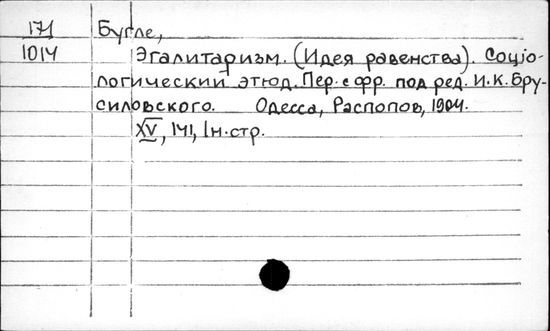 171 Бугле,
1014 Эгалитаризм. (Идея равенства). Соціо-
логический этюд. Пер. с фр. под ред. И.К. Бру-
силовского. Одесса, Распопов, 1904.
XV, 141, 1н.стр.